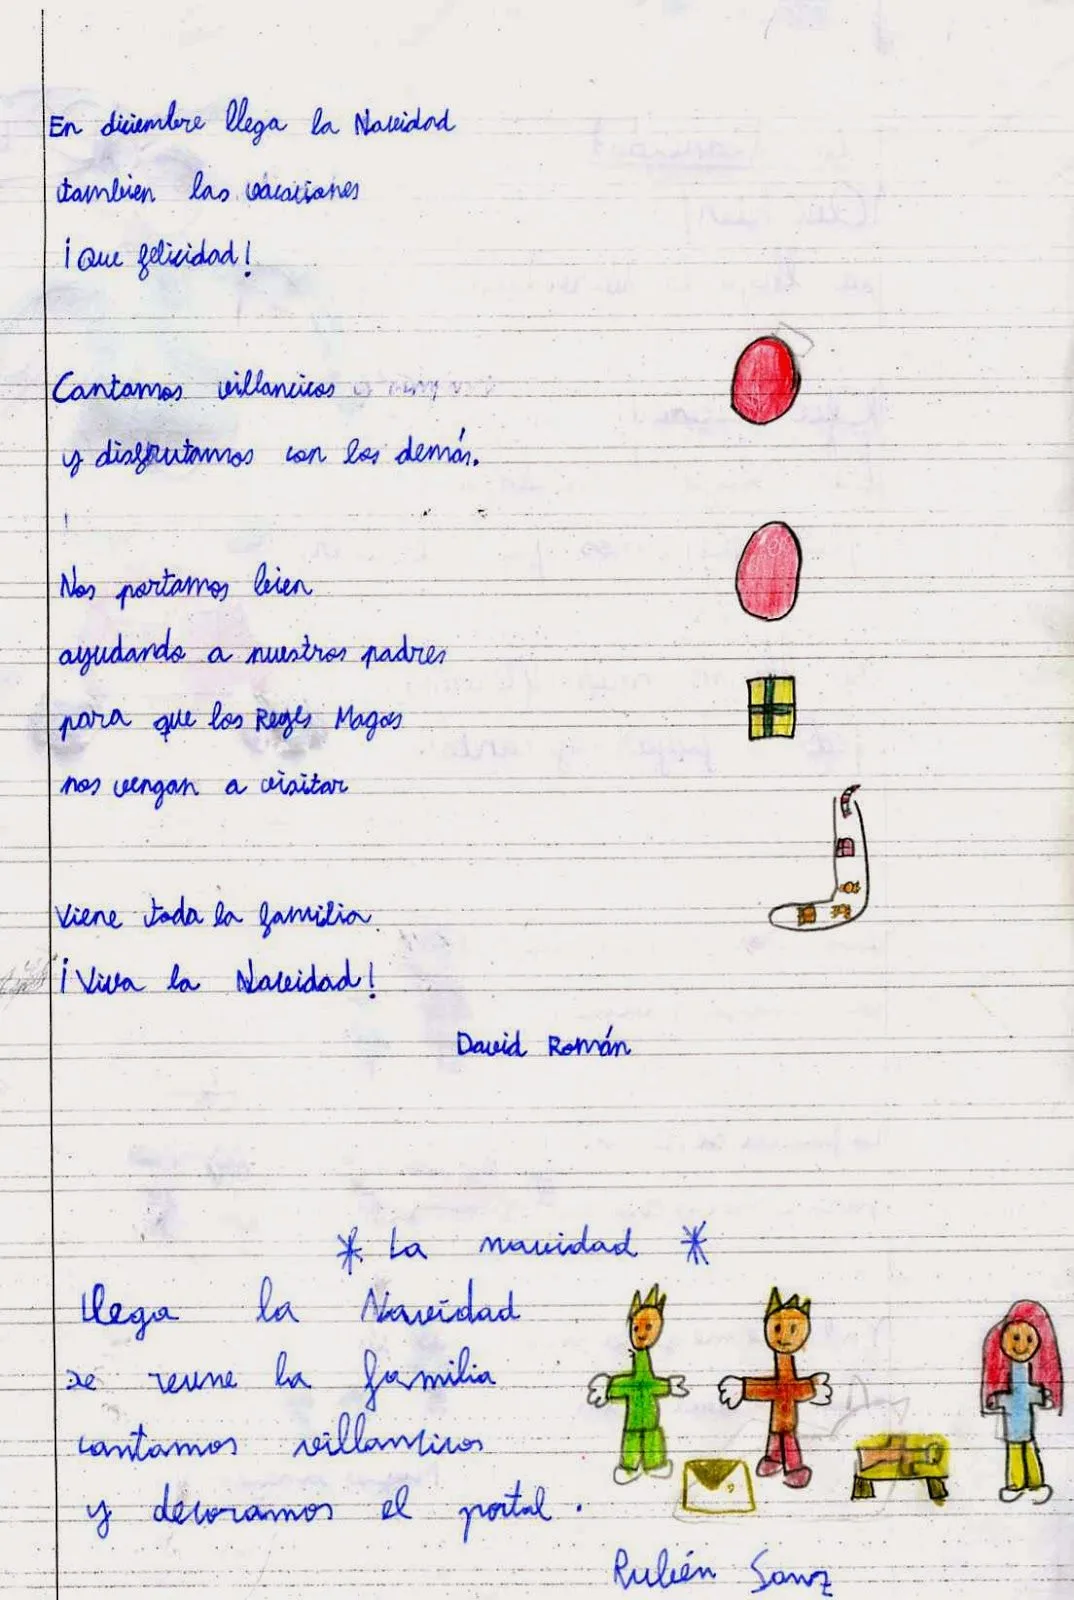 En diciembre llega la Navidad
tambien las vacaciones
¡Que felicidad!
Cantamos villancicos
y disfrutamos con los demás.
Nos portamos bien
ayudando a nuestros padres
para que los Reyes Magos
nos vengan a visitar
Viene toda la familia
¡Viva la Navidad!
David Román
* La navidad *
Llega la Navidad
se reune la familia
cantamos villancicos
y decoramos el portal.
Rubén Sanz